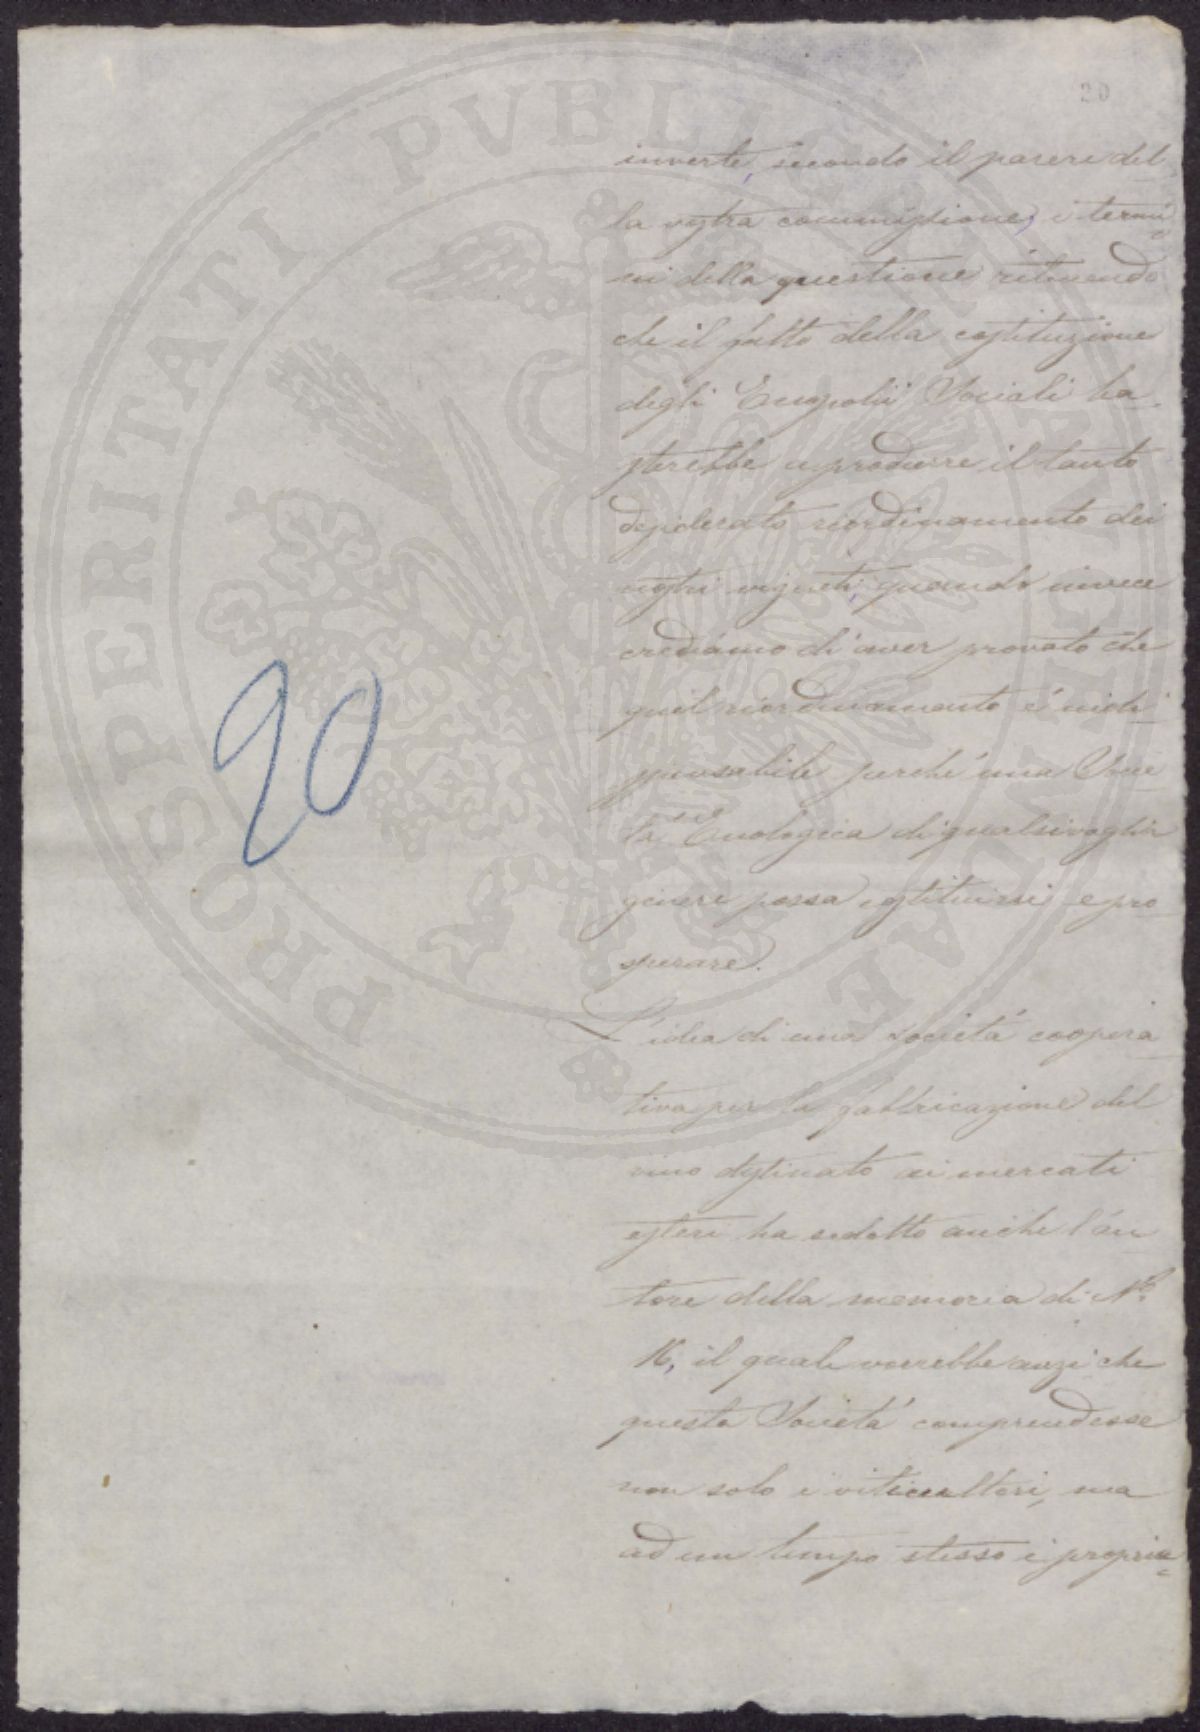 20
inverte, secondo il parere del
la vostra commissione, i termi
ni della questione ritenendo
che il fatto della costituzione
degli Enopolii Sociali ba
sterebbe a produrre il tanto
desiderato riordinamento dei
nostri vigneti, quando invece
crediamo di aver provato che
quel riordinamento é indi
spensabile perché una Socie
tá Enologica di qualsivoglia
genere possa costituirsi e pro
sperare.
20
L'idea di una societá coopera
tiva per la fabbricazione del
vino destinato ai mercati
esteri ha sedotto anche l'au
tore della memoria di No.
16, il quale vorrebbe anzi che
questa Societá comprendesse
non solo i viticultori, ma
ad un tempo stesso i proprie=
PROSPERITATI PVBLICAE AVGENDAE